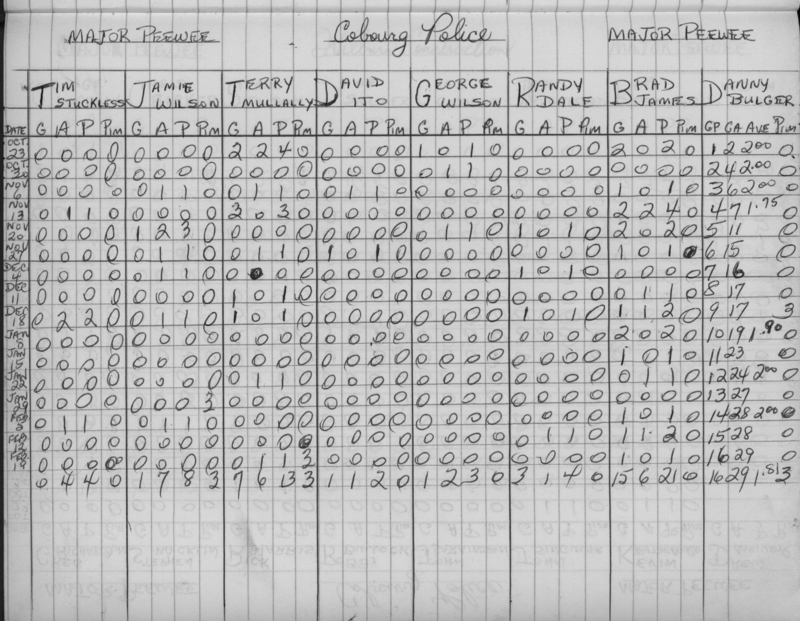 MAJOR PEEWEE Cobourg Police MAJOR PEEWEE
TIM STUCKLESS JAMIE WILSON TERRY MULLALLY DAVID ITO GEORGE WILSON RANDY DALE BRAD JAMES DANNY BULGER
DATE G A P Pim G A P Pim G A P Pim G A P Pim G A P Pim G A P Pim G A P Pim GP GA AVE Pim
OCT 23 0 0 0 0 0 0 0 0 2 2 4 0 0 0 0 0 1 0 1 0 0 0 0 0 2 0 2 0 1 2 2.00 0
OCT 30 0 0 0 0 0 0 0 0 0 0 0 0 0 0 0 0 0 1 1 0 0 0 0 0 0 0 0 0 2 4 2.00 0
NOV 6 0 0 0 0 0 1 1 0 0 1 1 0 0 1 1 0 0 0 0 0 0 0 0 0 1 0 1 0 3 6 2.00 0
NOV 13 0 1 1 0 0 0 0 0 3 0 3 0 0 0 0 0 0 0 0 0 0 0 0 0 2 2 4 0 4 7 1.75 0
NOV 20 0 0 0 0 1 2 3 0 0 0 0 0 0 0 0 0 0 1 1 0 1 0 1 0 2 0 2 0 5 11 0
NOV 27 0 0 0 0 0 1 1 0 0 1 1 0 1 0 1 0 0 0 0 0 0 0 0 0 1 0 1 0 6 15 0
DEC 4 0 0 0 0 0 1 1 0 0 0 0 0 0 0 0 0 0 0 0 1 0 1 0 0 0 0 0 7 16 0
DEC 11 0 0 0 0 0 0 0 0 1 0 1 0 0 0 0 0 0 0 0 0 0 0 0 0 0 1 1 0 8 17 0
DEC 18 0 2 2 0 0 1 1 0 1 0 1 0 0 0 0 0 0 0 0 0 1 0 1 0 1 1 2 0 9 17 3
JAN 0 0 0 0 0 0 0 0 0 0 0 0 0 0 0 0 0 0 0 0 0 0 0 0 2 0 2 0 10 19 1.90 0
JAN 15 0 0 0 0 0 0 0 0 0 0 0 0 0 0 0 0 0 0 0 0 0 0 0 0 1 0 1 0 11 23 0
JAN 22 0 0 0 0 0 0 0 0 0 1 1 0 0 0 0 0 0 0 0 0 0 0 0 0 0 1 1 0 12 24 2.00 0
JAN 29 0 0 0 0 0 0 0 3 0 0 0 0 0 0 0 0 0 0 0 0 0 0 0 0 0 0 0 0 13 27 0
FEB 5 0 1 1 0 0 1 1 0 0 0 0 0 0 0 0 0 0 0 0 0 0 0 0 0 1 0 1 0 14 28 2.00 0
FEB 0 0 0 0 0 0 0 0 0 0 0 0 0 0 0 0 0 0 0 0 0 1 1 0 1 1 2 0 15 28 0
FEB 19 0 0 0 0 0 0 0 0 0 1 1 3 0 0 0 0 0 0 0 0 0 0 0 0 1 0 1 0 16 29 0
0 4 4 0 1 7 8 3 7 6 13 3 1 1 2 0 1 2 3 0 3 1 4 0 15 6 21 0 16 29 1.81 3